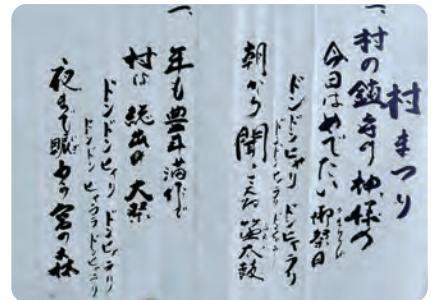 村まつり
一、村の鎮守の神様の
今日はめでたい御祭日
ドンドンヒャラリ ドンヒャラリ
ドンドンヒャララ ドンヒャラリ
朝から聞こえる笛太鼓
一、年も豊年満作で
村は総出の大祭
ドンドンヒャラリ ドンヒャラリ
ドンドンヒャララ ドンヒャラリ
夜まで賑わう宮の森